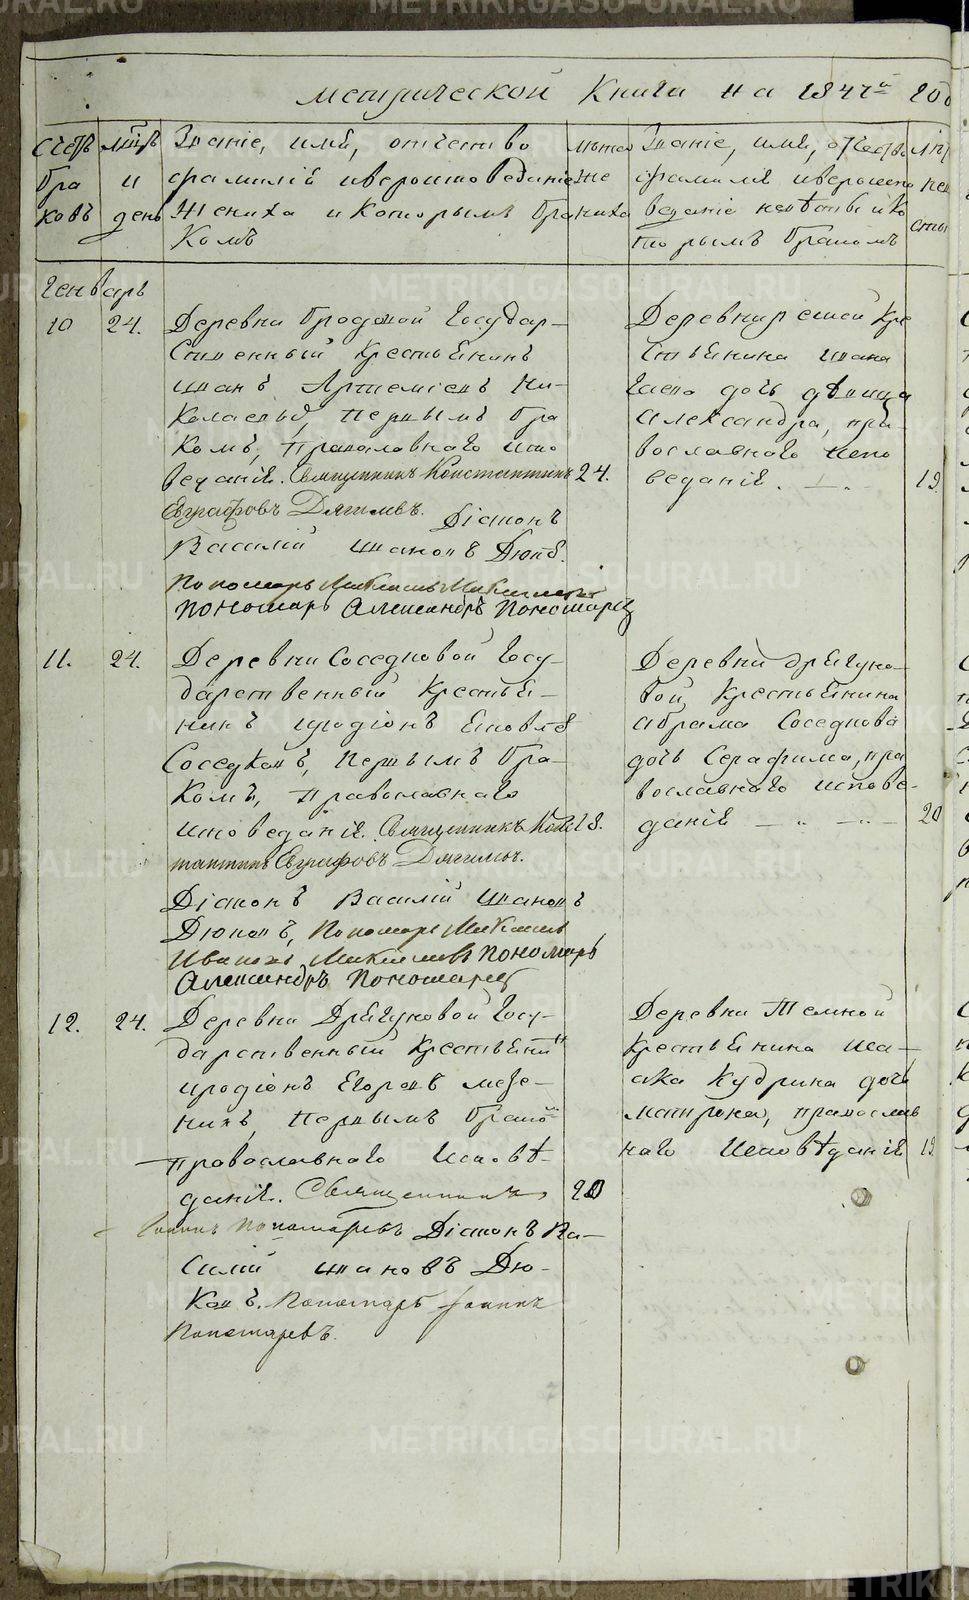 метрической книги на 1847й год
Счетъ
бра
ковъ
мцъ
и
день
Званіе, имя, отчество
фамилія и вероисповеданіе
Жениха и которымъ бра
комъ
лета
же
ниха
Званіе, имя, отчество
фамилія и вероиспо
веданіе невѣсты и ко
торымъ бракомъ
лѣт
нев
сты
Генварь
10
24.
Деревни Бродовой Государ-
ственный крестьянинъ
Иванъ Артемиевъ Ни-
колаевъ, первымъ бра
комъ, православнаго испо
веданія. Священникъ Константинъ
Евграфовъ Дягилевъ. Діаконъ
Василій Ивановъ Дюков.
Пономарь
Пономарь Александръ Пономаревъ
24.
Деревни крe
стьянина Ивана
дочь дѣвица
Александра, пра-
вославнаго испо
веданія. - . -
19.
11.
24.
Деревни Соседковой Госу-
дарственный крестья-
нинъ Иродіонъ Яковлев
Соседковъ, первымъ бра-
комъ, православнаго
исповеданія. Священникъ Конс
тантинъ Евграфовъ Дягилевъ.
Діаконъ Василій Ивановъ
Дюковъ, Пономарь
Ивановъ Пономарь
Александръ Пономаревъ
18.
Деревни Дрягуно-
вой крестьянина
Абрама Соседкова
дочь Серафима, пра
вославнаго испове-
данія - " - " -
20
12.
24.
Деревни Дрягуновой Госу-
дарственный крестьянин
Иродіонъ Егоровъ Мезе-
нинъ, первымъ бракомъ
православнаго исповѣ-
данія. Священникъ
Іоаннъ Пономаревъ Діаконъ Ва-
силій Ивановъ Дю-
ковъ. Пономарь Іоаннъ
Пономаревъ.
20
Деревни Темной
крестьянина Иса-
ака Кудрина дочь
Матрона, православ
наго исповѣданія
19
METRIKI.GASO-URAL.RU